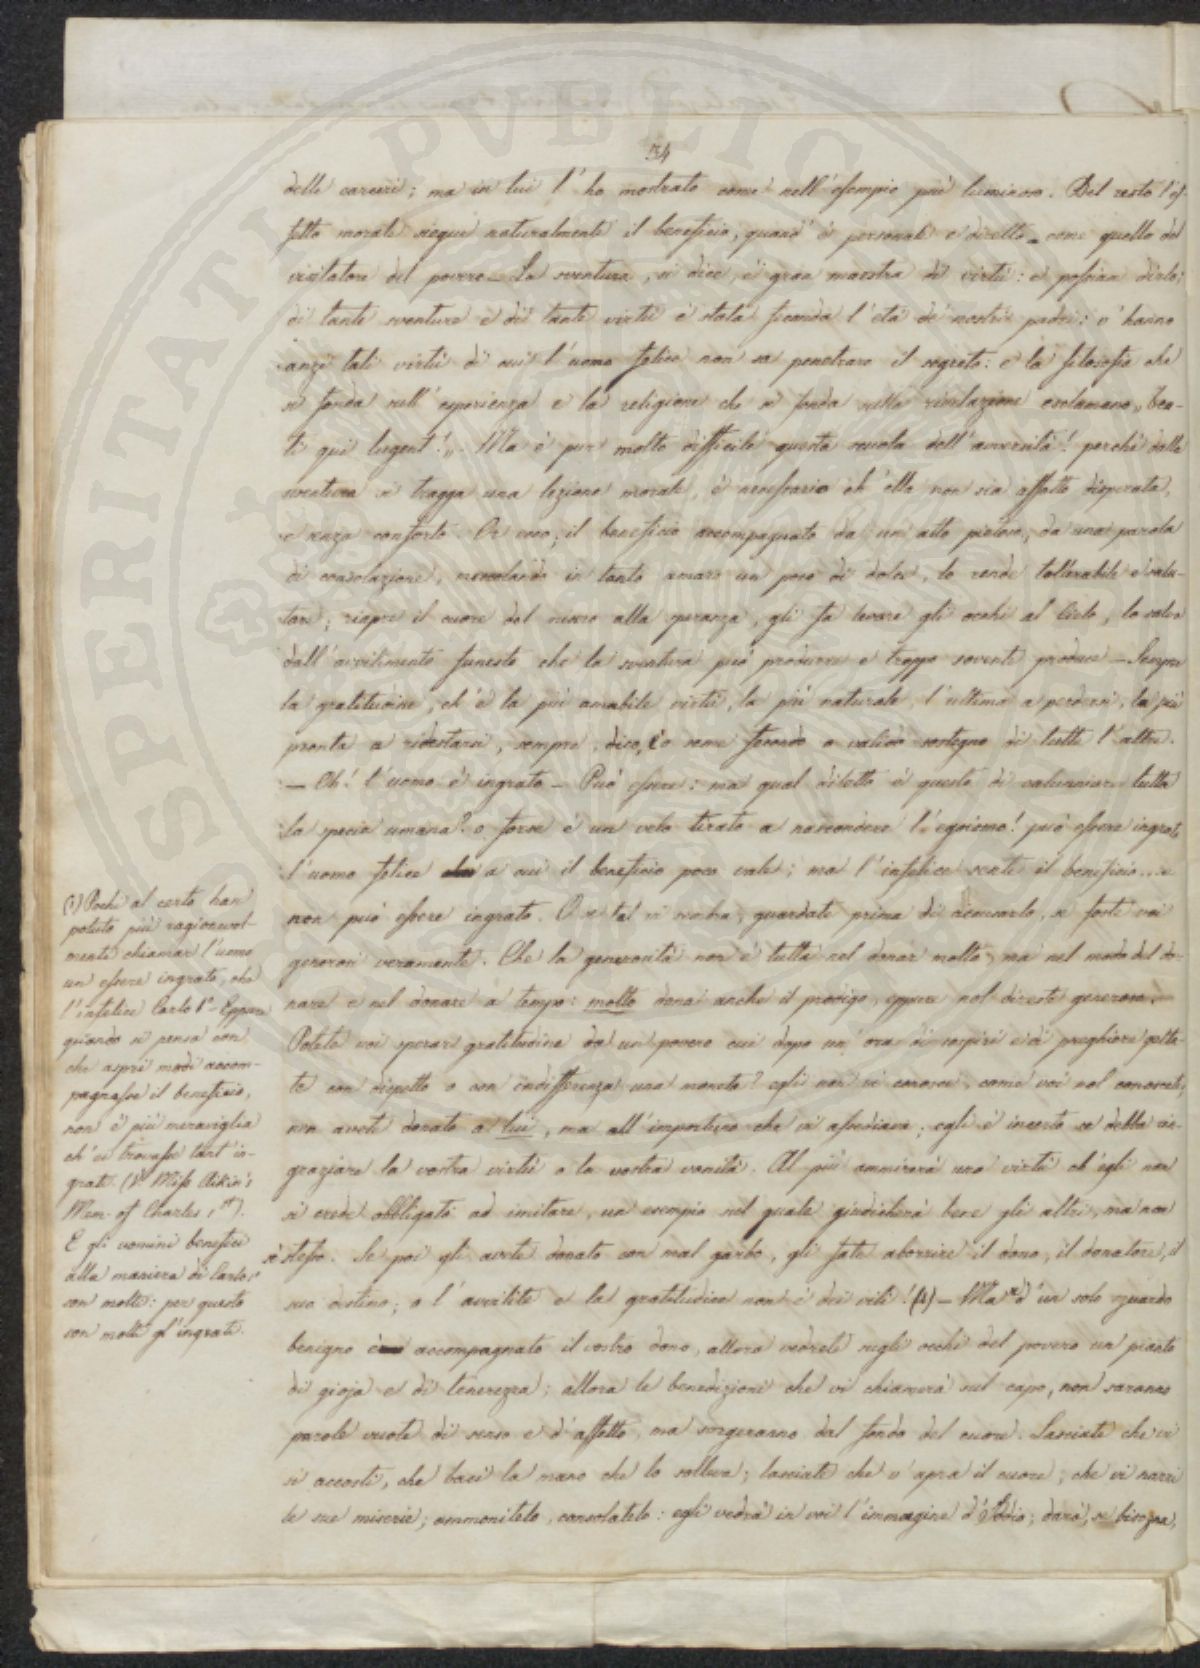 34
delle carceri; ma in lui l'ho mostrato come nell'esempio più luminoso. Del resto l'ef-
fetto morale siegue naturalmente il beneficio, quand'è personale e diretto come quello del
visitatore del povero – La sventura, si dice, è gran maestra di virtù: e possiam dirlo;
di tante sventure e di tante virtù è stata feconda l'età de' nostri padri: v'hanno
anzi tali virtù di cui l'uomo felice non sa penetrare il segreto: e la filosofia che
si fonda sull'esperienza e la religione che si fonda sulla rivelazione esclamano „bea-
ti qui lugent!„. Ma è pur molto difficile questa scuola dell'avversità! perchè dalla
sventura si tragga una lezione morale, è necessario ch'ella non sia affatto disperata,
e senza conforto. Or ecco; il beneficio accompagnato da un atto pietoso, da una parola
di consolazione, mescolando in tanto amaro un poco di dolce, lo rende tollerabile e salu-
tare; riapre il cuore del misero alla speranza, gli fa levare gli occhi al Cielo, lo salva
dall'avvilimento funesto che la sventura può produrre e troppo sovente produce – Sempre
la gratitudine, ch'è la più amabile virtù, la più naturale, l'ultima a perdersi, la più
pronta a ridestarsi, sempre, dico, è seme fecondo o valido sostegno di tutte l'altre.
– Oh! l'uomo è ingrato – Può essere: ma qual diletto è questo di calunniare tutta
la specie umana? o forse è un velo tirato a nascondere l'egoismo! può essere ingrato
l'uomo felice a cui il beneficio poco vale; ma l'infelice sente il beneficio... e
non può essere ingrato. O se tal vi sembra, guardate prima di accusarlo, se foste voi
generosi veramente. Che la generosità non è tutta nel donar molto, ma nel modo del do-
nare e nel donare a tempo: molto dona anche il prodigo, eppure nol direste generoso. –
Potete voi sperare gratitudine da un povero cui dopo un'ora di sospiri e di preghiere getta-
te con dispetto o con indifferenza una moneta? egli non vi conosce, come voi nol conoscete;
non avete donato a lui, ma all'importuno che vi assediava; egli è incerto se debba rin-
graziare la vostra virtù o la vostra vanità. Al più ammirerà una virtù ch'egli non
si crede obbligato ad imitare, un esempio nel quale giudicherà bene gli altri, ma non
sè stesso. Se poi gli avete donato con mal garbo, gli fate aborrire il dono, il donatore, il
suo destino; o l'avvilite e la gratitudine non è dei vili! (1) – Ma se d'un solo sguardo
benigno è accompagnato il vostro dono, allora vedrete negli occhi del povero un pianto
di gioja e di tenerezza; allora le benedizioni che vi chiamerà sul capo, non saranno
parole vuote di senso e d'affetto, ma sorgeranno dal fondo del cuore. Lasciate che vi
si accosti, che baci la mano che lo solleva; lasciate che v'apra il cuore; che vi narri
le sue miserie; ammonitelo, consolatelo: egli vedrà in voi l'immagine d'Iddio; darà, se bisogna,
(1) Pochi al certo han
potuto più ragionevol-
mente chiamar l'uomo
un essere ingrato, che
l'infelice Carlo 1° – Eppure
quando si pensa con
che aspri modi accom-
pagnasse il beneficio,
non è più meraviglia
ch'ei trovasse tant'in-
grati. (V. Miss Aikin's
Mem. of Charles 1st).
E gli uomini benefici
alla maniera di Carlo 1°
son molti: per questo
son molti gl'ingrati.
SPERITATI PVBLICAE